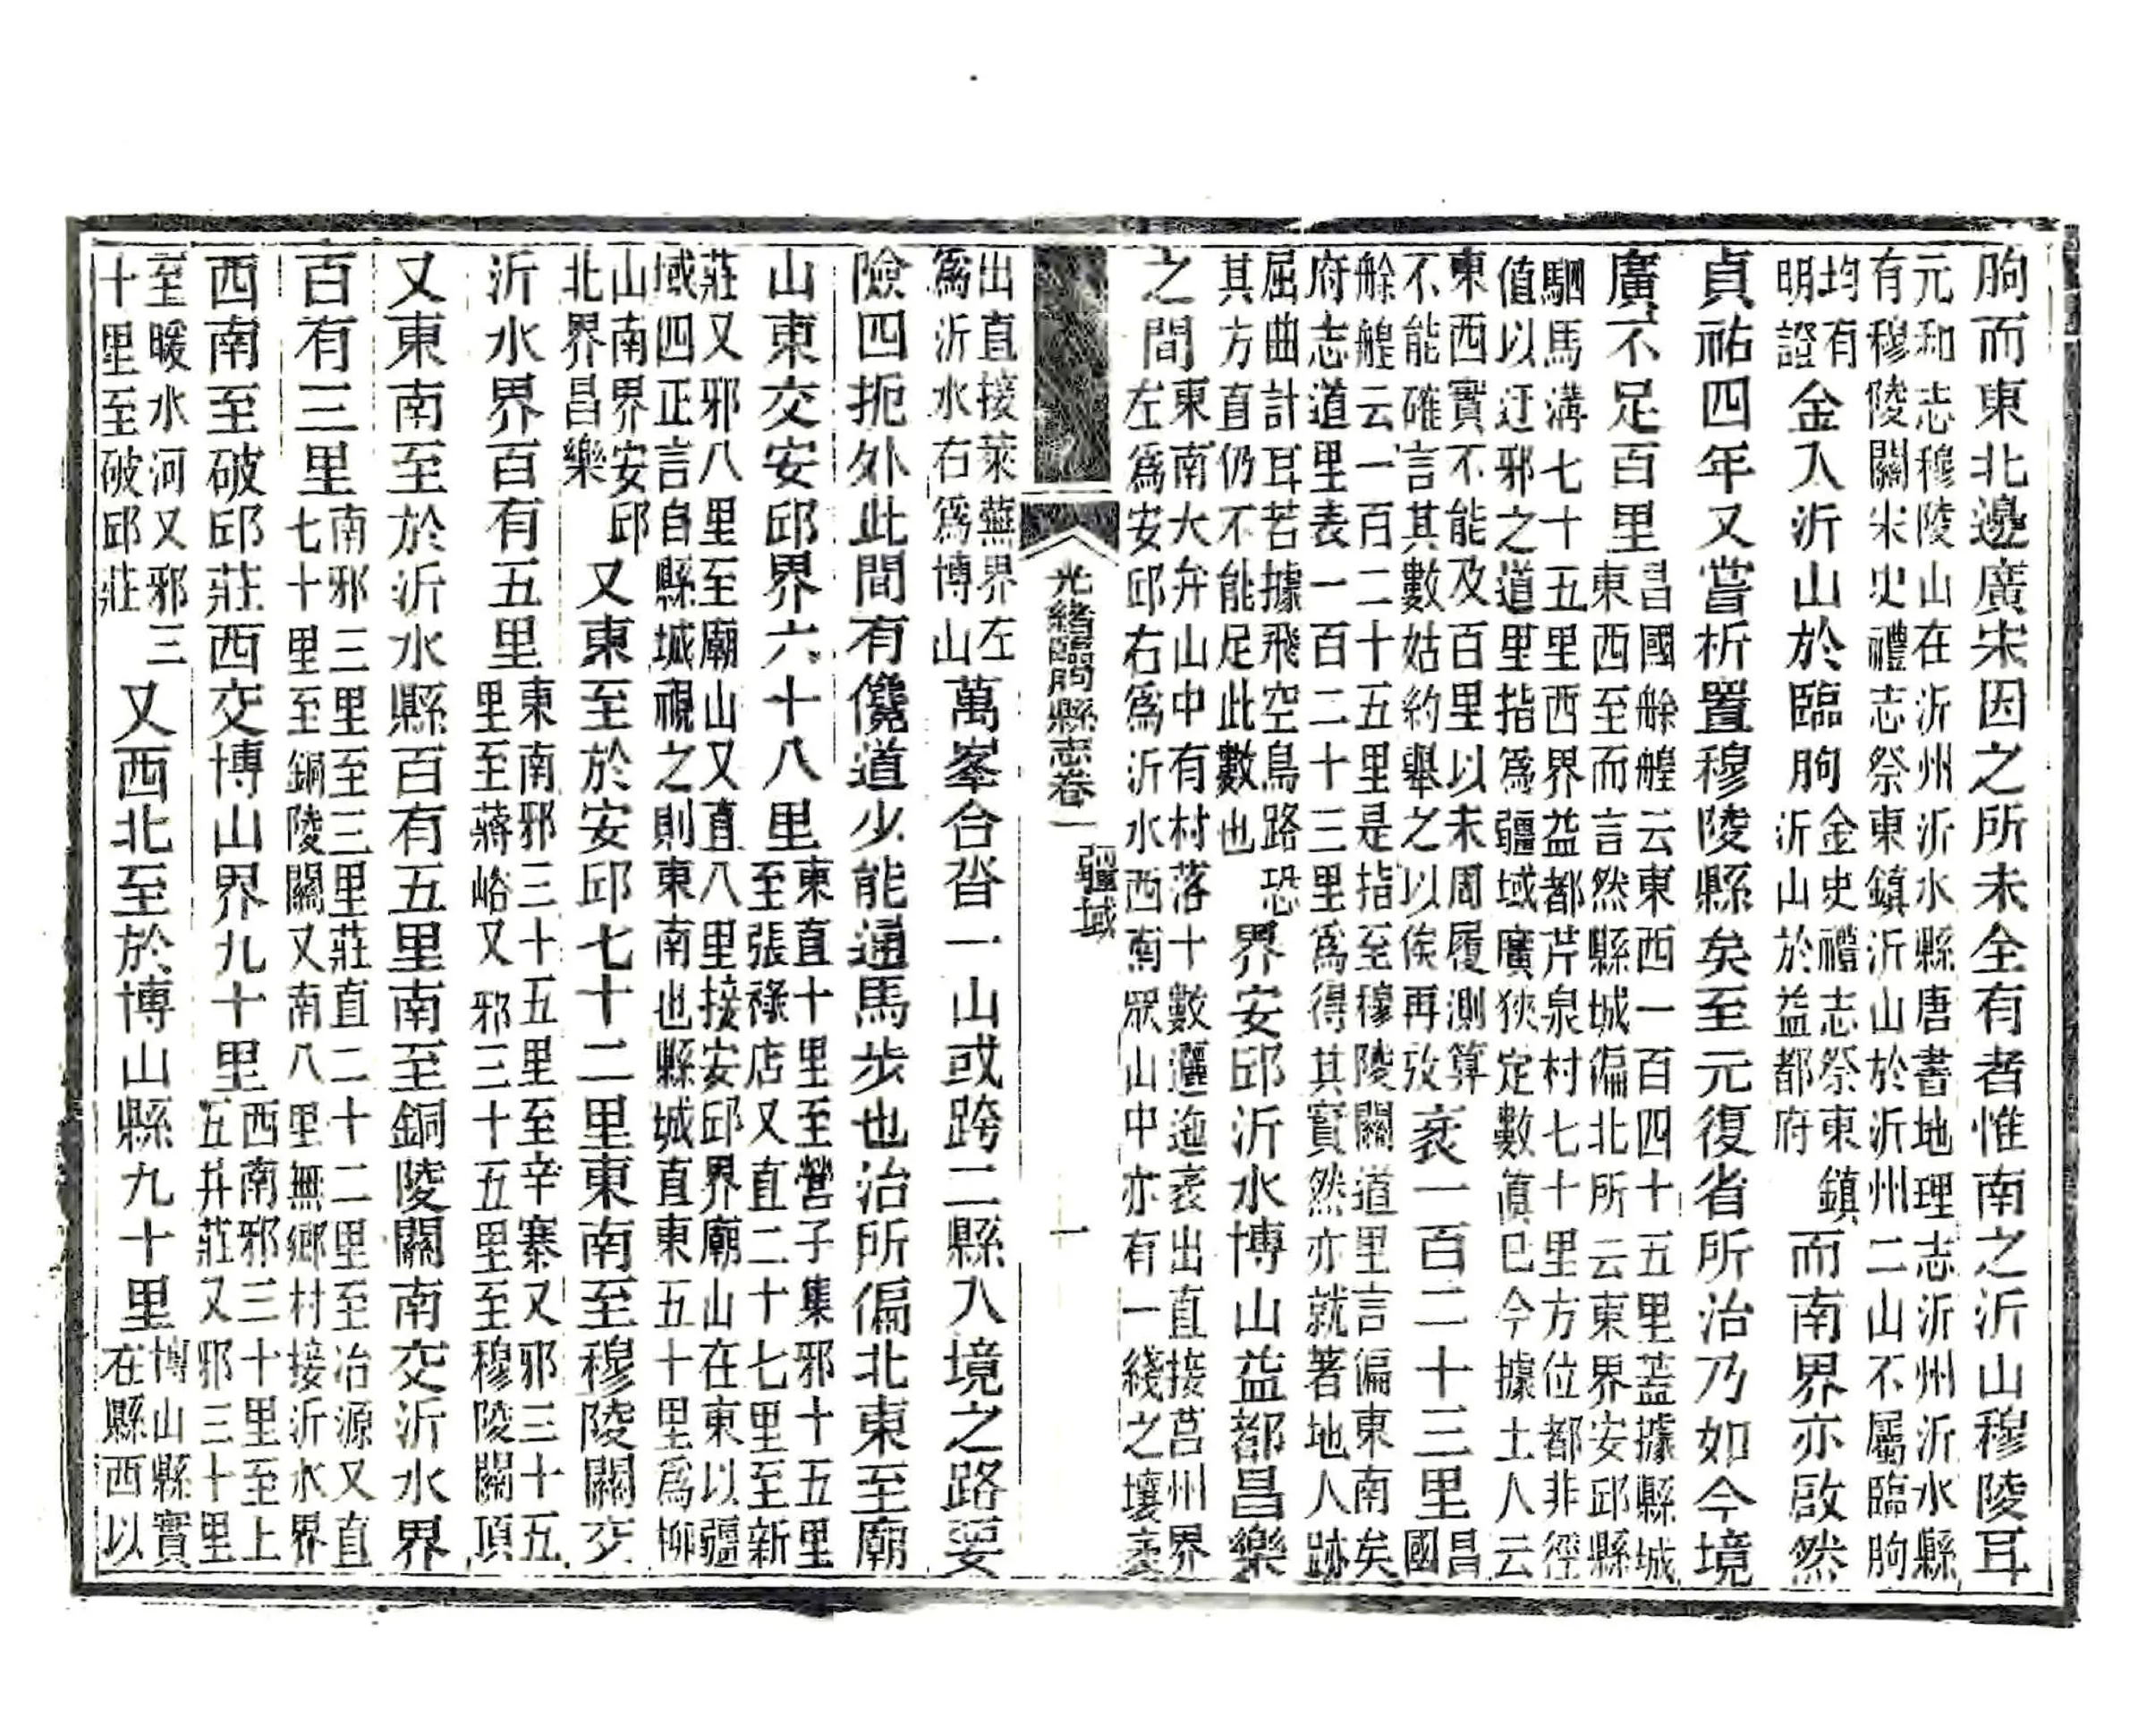 朐而東北邊廣宋因之所未全有者惟南之沂山穆陵耳
元和志穆陵山在沂州沂水縣唐書地理志沂州沂水縣
有穆陵關宋史禮志祭東鎮沂山於沂州二山不屬臨朐
均有明證金入沂山於臨朐金史禮志祭東鎮沂山於益都府而南界亦啟然
貞祐四年又嘗析置穆陵縣矣至元復省所治乃如今境
廣不足百里昌國艅艎云東西一百四十五里蓋據縣城東西至而言然縣城偏北所云東界安邱縣
駟馬溝七十五里西界益都芹泉村七十里方位都非徑
值以迂邪之道里指爲疆域廣狹定數眞已今據土人云
東西實不能及百里以未周履測算不能確言其數姑約舉之以俟再攷袤一百二十三里昌國
艅艎云一百二十五里是指至穆陵關道里言偏東南矣
府志道里表一百二十三里爲得其實然亦就著地人跡
屈曲計耳若據飛空鳥路恐其方直仍不能足此數也界安邱沂水博山益都昌樂
之間東南大弁山中有村落十數邐迤袤出直接莒州界左爲安邱右爲沂水西南眾山中亦有一綫之壤袤
光緒臨朐縣志卷一 疆域 一
出直接萊蕪界左爲沂水右爲博山萬峯合沓一山或跨二縣入境之路要
險四扼外此間有儳道少能通馬步也治所偏北東至廟
山東交安邱界六十八里東直十里至營子集邪十五里至張祿店又直二十七里至新
莊又邪八里至廟山又直八里接安邱界廟山在東以疆
域四正言自縣城視之則東南也縣城直東五十里爲柳
山南界安邱北界昌樂又東至於安邱七十二里東南至穆陵關交
沂水界百有五里東南邪三十五里至辛寨又邪三十五里至蔣峪又邪三十五里至穆陵關頂
又東南至於沂水縣百有五里南至銅陵關南交沂水界
百有三里南邪三里至三里莊直二十二里至冶源又直七十里至銅陵關又南八里無鄉村接沂水界
西南至破邱莊西交博山界九十里西南邪三十里至上五井莊又邪三十里
至暖水河又邪三十里至破邱莊又西北至於博山縣九十里博山縣實在縣西以